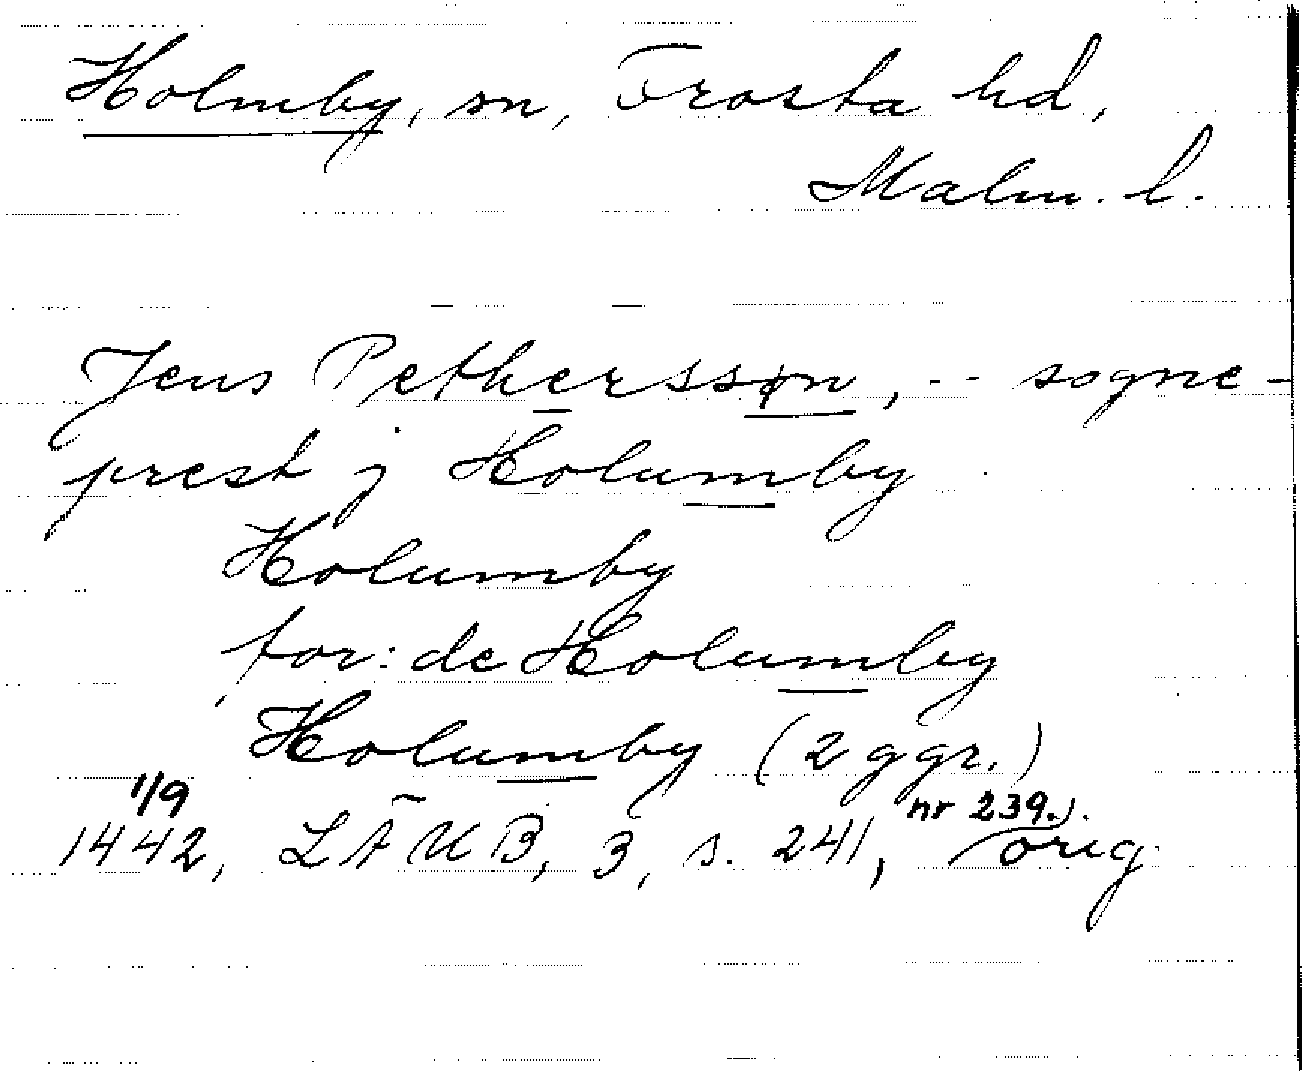 Holmby, sn, Frosta hd,
Malm. l.
Jens Pethersszøn, -- sogne-
prest j Holumby
Holumby
for: de Holumby
Holumby (2 ggr.)
1/9 nr 239.
1442, LÄUB, 3, s. 241, orig